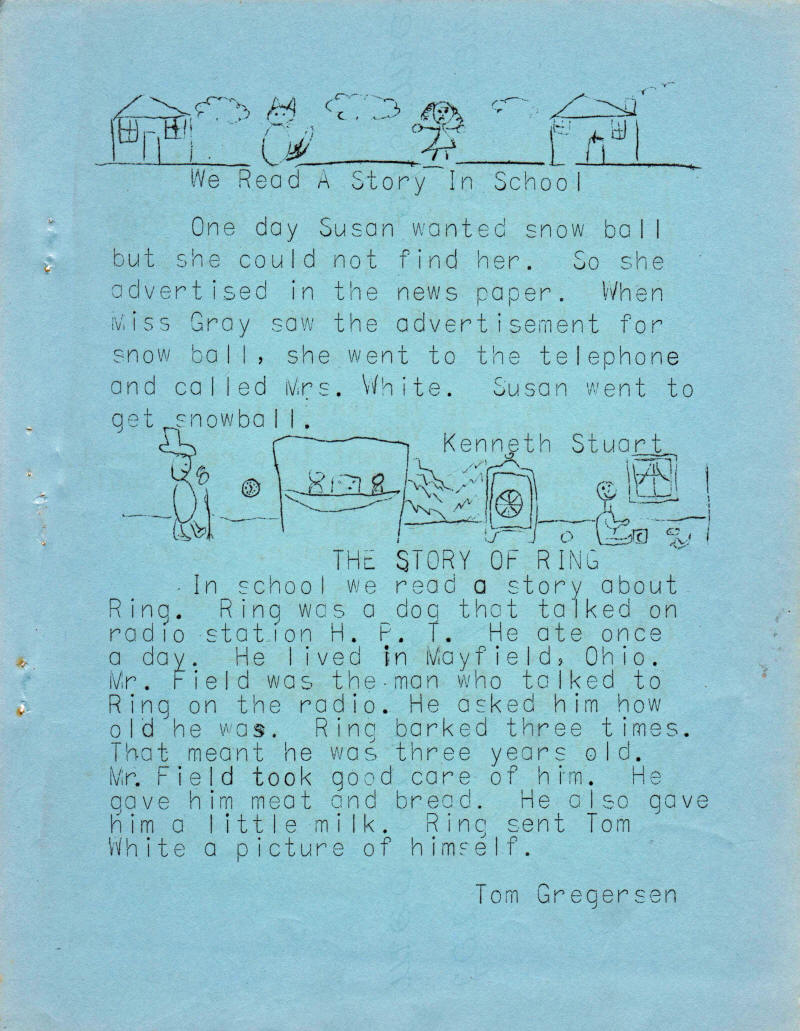 We Read A Story In School
One day Susan wanted snow ball
but she could not find her. So she
advertised in the news paper. When
Miss Gray saw the advertisement for
snow ball, she went to the telephone
and called Mrs. White. Susan went to
get snowball.
Kenneth Stuart
THE STORY OF RING
In school we read a story about
Ring. Ring was a dog that talked on
radio station H. P. T. He ate once
a day. He lived in Mayfield, Ohio.
Mr. Field was the man who talked to
Ring on the radio. He asked him how
old he was. Ring barked three times.
That meant he was three years old.
Mr. Field took good care of him. He
gave him meat and bread. He also gave
him a little milk. Ring sent Tom
White a picture of himself.
Tom Gregersen